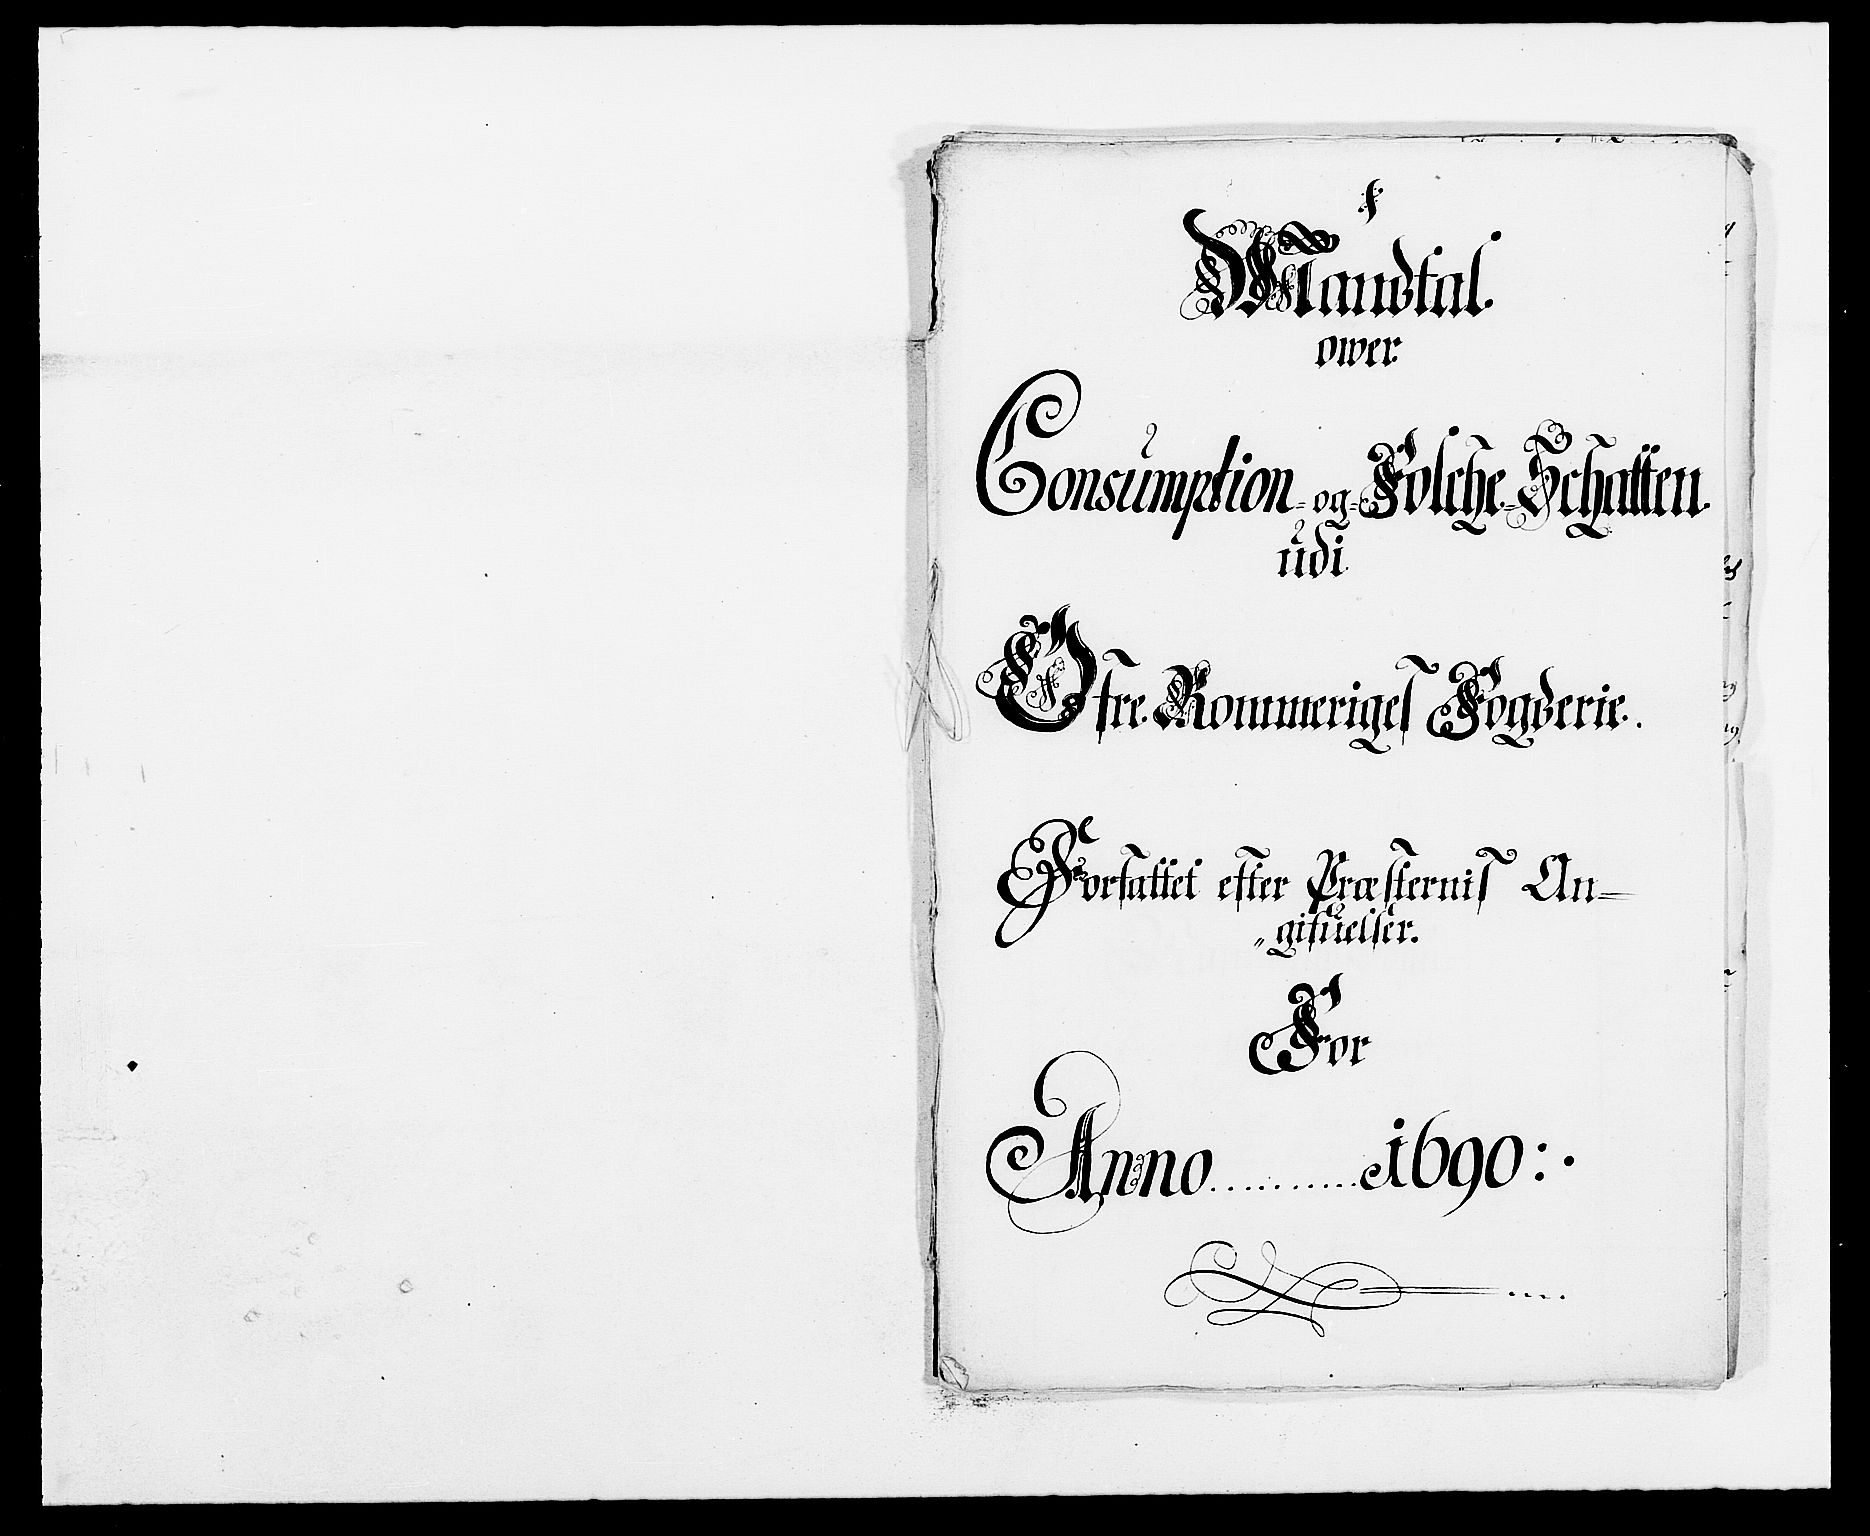 Mandtal.
ower
Consumption- og- Folche- Schatten.
udi
Ofre Rommeriges Fogderie.
Forfattet efter Præsternis An=
„gifuelser.
For
Anno..........1690:.